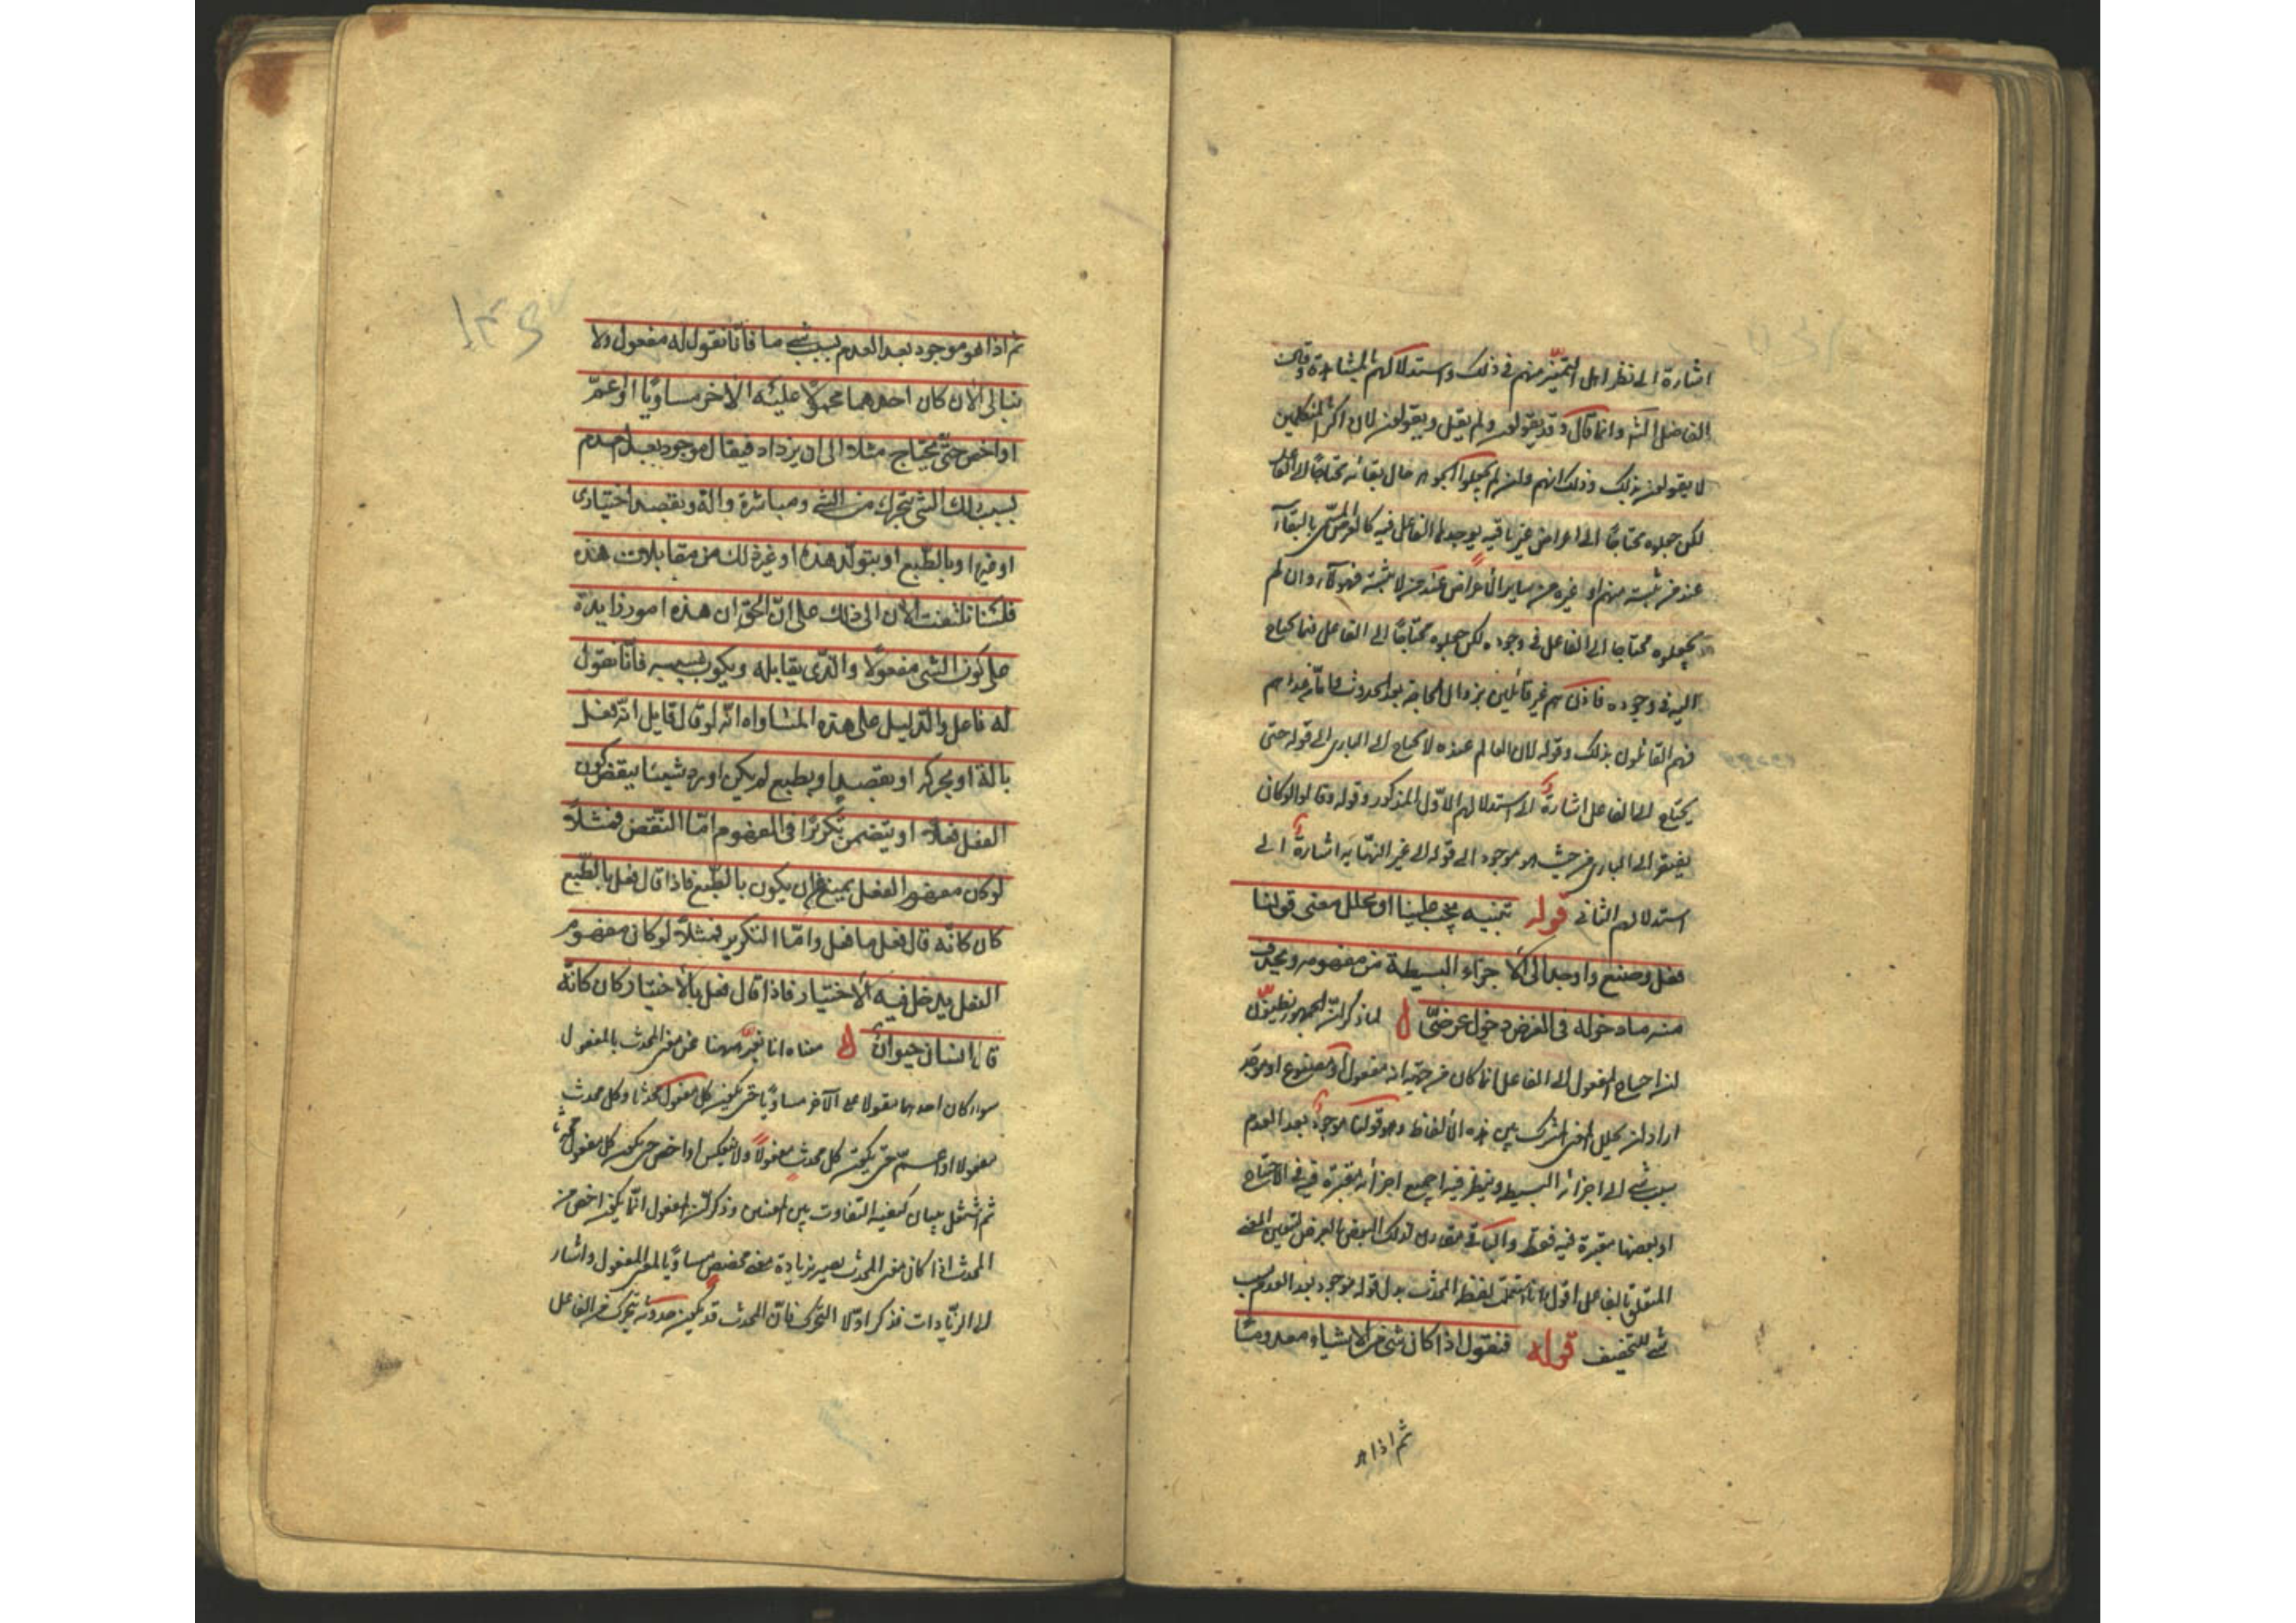 اشارة الى نظر اهل التميّز منهم فى ذلك واستدلالهم بالمشاهدة وقال
الفاضل الش وانما قال وقد يقولون ولم يقل ويقولون لان اكثر المتكلمين
لا يقولون بذلك وذلك انهم وان لم يجعلوا الجوهر حال بقائه محتاجا الى الفاعل
لكن جعلوه محتاجا الى اعراض غير باقية يوجدها الفاعل فيه كالعرض المسمّى بالبقاء
عند من يثبته منهم او غيره من ساير الاعراض عند من لا يثبته فهولاء وان لم
يجعلوه محتاجا الى الفاعل فى وجوده لكن جعلوه محتاجا الى الفاعل فيما يحتاج
اليه فى وجوده فاذن هم غير قائلين بزوال الحاجة بعد الحدوث فامّا من عداهم
فهم القائلون بذلك وقوله لان العالم عنده لا يحتاج الى البارى الى قوله حتى
يحتاج الى الفاعل اشارة الى استدلالهم الاوّل المذكور وقوله وقالوا لو كان
يفتقر الى البارى من حيث هو موجود الى قوله الى غير النهاية اشارة الى
استدلالهم الثانى قوله تنبيه يجب علينا ان نحلل معنى قولنا
فعل وصنع واوجد الى الاجزاء البسيطة من مفهومه ونحذف
منه ما دخوله فى الغرض دخول عرضىّ ل لما ذكر ان الجمهور يظنون
ان احتياج المفعول الى الفاعل انما كان من جهة انه مفعول او مصنوع او موجد
اراد ان يحلل المعنى المشترك بين هذه الالفاظ وهو قولنا موجود بعد العدم
بسبب شئ الى اجزائه البسيطة وينظر فيه اجميع اجزائه معتبرة فيه فى الاحتياج
او بعضها معتبرة فيه فقط والباقى مقارن لذلك البعض بالعرض ليتعين المعنى
المتعلق بالفاعل اقول انا استعملت لفظة المحدث بدل قوله موجود بعد العدم بسبب
شئ للتخفيف قوله فنقول اذا كان شئ من الاشياء معدوما
ثم اذا هو
ثم اذا هو موجود بعد العدم بسبب شئ ما فانّا نقول له مفعول ولا
نبالى الان كان احدهما محمولا عليه الاخر مساويا او اعمّ
او اخص حتّى يحتاج مثلا الى ان يزداد فيقال موجود بعد العدم
بسبب ذلك الشئ بتحرك من الشئ ومباشرة وبالة وبقصد اختيارى
او غيره او بالطبع او بتولّد هذه او غير ذلك من مقابلات هذه
فلسنا نلتفت الان الى ذلك على انّ الحق ان هذه امور زايدة
على كون الشئ مفعولا والذى يقابله ويكون بسببه فانّا نقول
له فاعل والدليل على هذه المساواه انّه لو قال قايل انّه فعل
بالة او بحركة او بقصد او بطبع لم يكن اورد شيئا ينقض كون
الفعل فعلا او يتضمن تكريرا فى المفهوم امّا النقض فمثلا
لو كان مفهوم الفعل يمنع ان يكون بالطبع فاذا قال فعل بالطبع
كان كانّه قال فعل ما فعل وامّا التكرير فمثلا لو كان مفهوم
الفعل يدخل فيه الاختيار فاذا قال فعل بالاختيار كان كانّه
قال انسان حيوان ل معناه انا نعبّر ههنا عن معنى المحدث بالمفعول
سواء كان احدهما مقولا على الآخر مساويا حتى يكون كل مفعول محدثا وكل محدث
مفعولا او اعمّ حتى يكون كل محدث مفعولا ولا ينعكس او اخص حتى يكون كل مفعول محدثا
ثم اشتغل ببيان كيفية التفاوت بين المعنيين وذكر ان المفعول انّما يكون اخص من
المحدث اذا كان معنى المحدث يصير بزيادة معنى مخصص مساويا لمعنى المفعول واشار
الى الزيادات فذكر اوّلا التحرك فانّ المحدث قد يكون حدوثه بتحرك من الفاعل